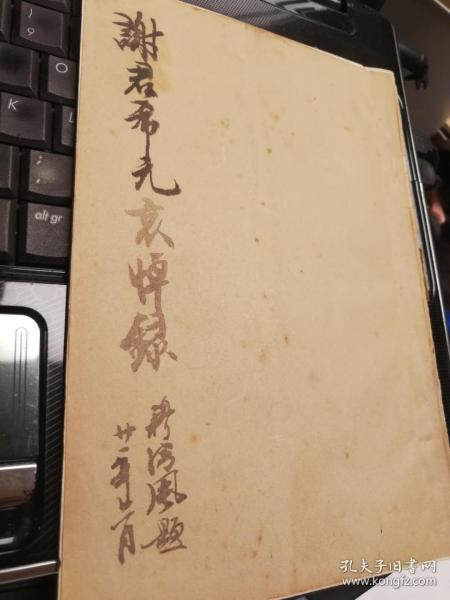 謝君希元哀悼錄
風題
廿一年月
)
9
O
K
L
alt gr
孔夫子旧书网
www.kongfz.com